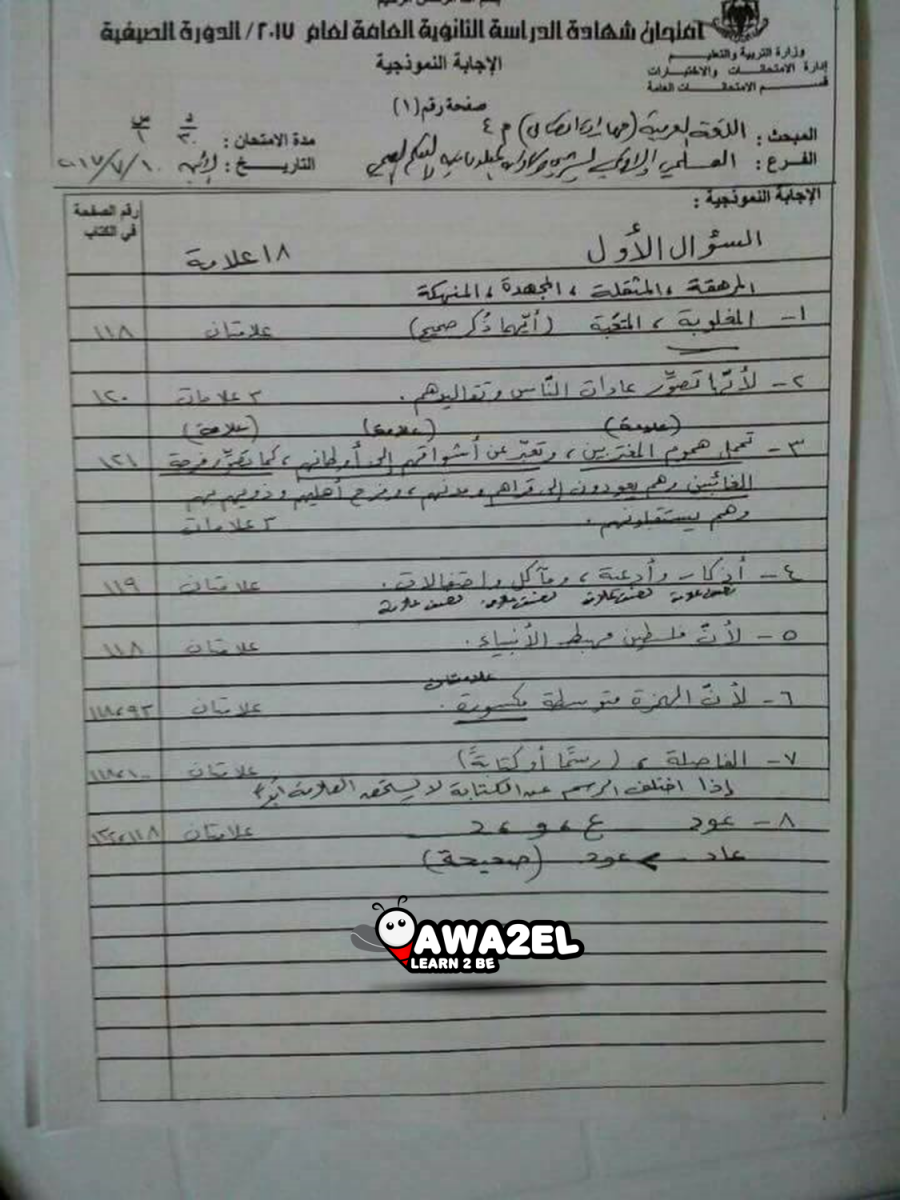 امتحان شهادة الدراسة الثانوية العامة لعام ٢٠١٧ / الدورة الصيفية
وزارة التربية والتعليم
إدارة الامتحانات والاختبارات
قسم الامتحانات العامة
الإجابة النموذجية
صفحة رقم (١)
المبحث : اللغة العربية (مهارات الاتصال) م ٤
مدة الامتحان :
د س
٣٠ ١
الفرع : العلمي والأدبي
التاريخ : الاثنين ١٠/٧/٢٠١٧
الإجابة النموذجية :
رقم الصفحة في الكتاب
السؤال الأول ١٨ علامة
المرهقة ، المثقلة ، المجهدة ، المنهكة
١- المغلوبة ، المتعبة (أيّها ذُكر صحيح) علامتان ١١٨
٢- لأنّها تصوِّر عادات النّاس وتقاليدهم . ٣ علامات ١٢٠
(علامة) (علامة) (علامة)
٣- تحمل هموم المغتربين ، وتعبّر عن أشواقهم إلى أوطانهم ، كما تصوّر فرحة ١٢١
الغائبين وهم يعودون إلى قراهم ومدنهم ، وفرح أهليهم وذويهم بهم
وهم يستقبلونهم . ٣ علامات
٤- أذكار وأدعية ، ومآكل واحتفالات . علامتان ١١٩
نصف علامة نصف علامة نصف علامة نصف علامة
٥- لأنّ فلسطين مهبط الأنبياء . علامتان ١١٨
علامتان
٦- لأنّ الهمزة متوسطة مكسورة . علامتان ١١٨،٩٣
٧- الفاصلة ، (رسمًا أو كتابةً) علامتان ١١٨،١٠٠
إذا اختلف الرسم عن الكتابة لا يستحق العلامة
٨- عود ع ، و ، د علامتان ١٣٢،١١٨
عاد عود (صحيحة)
AWA2EL
LEARN 2 BE